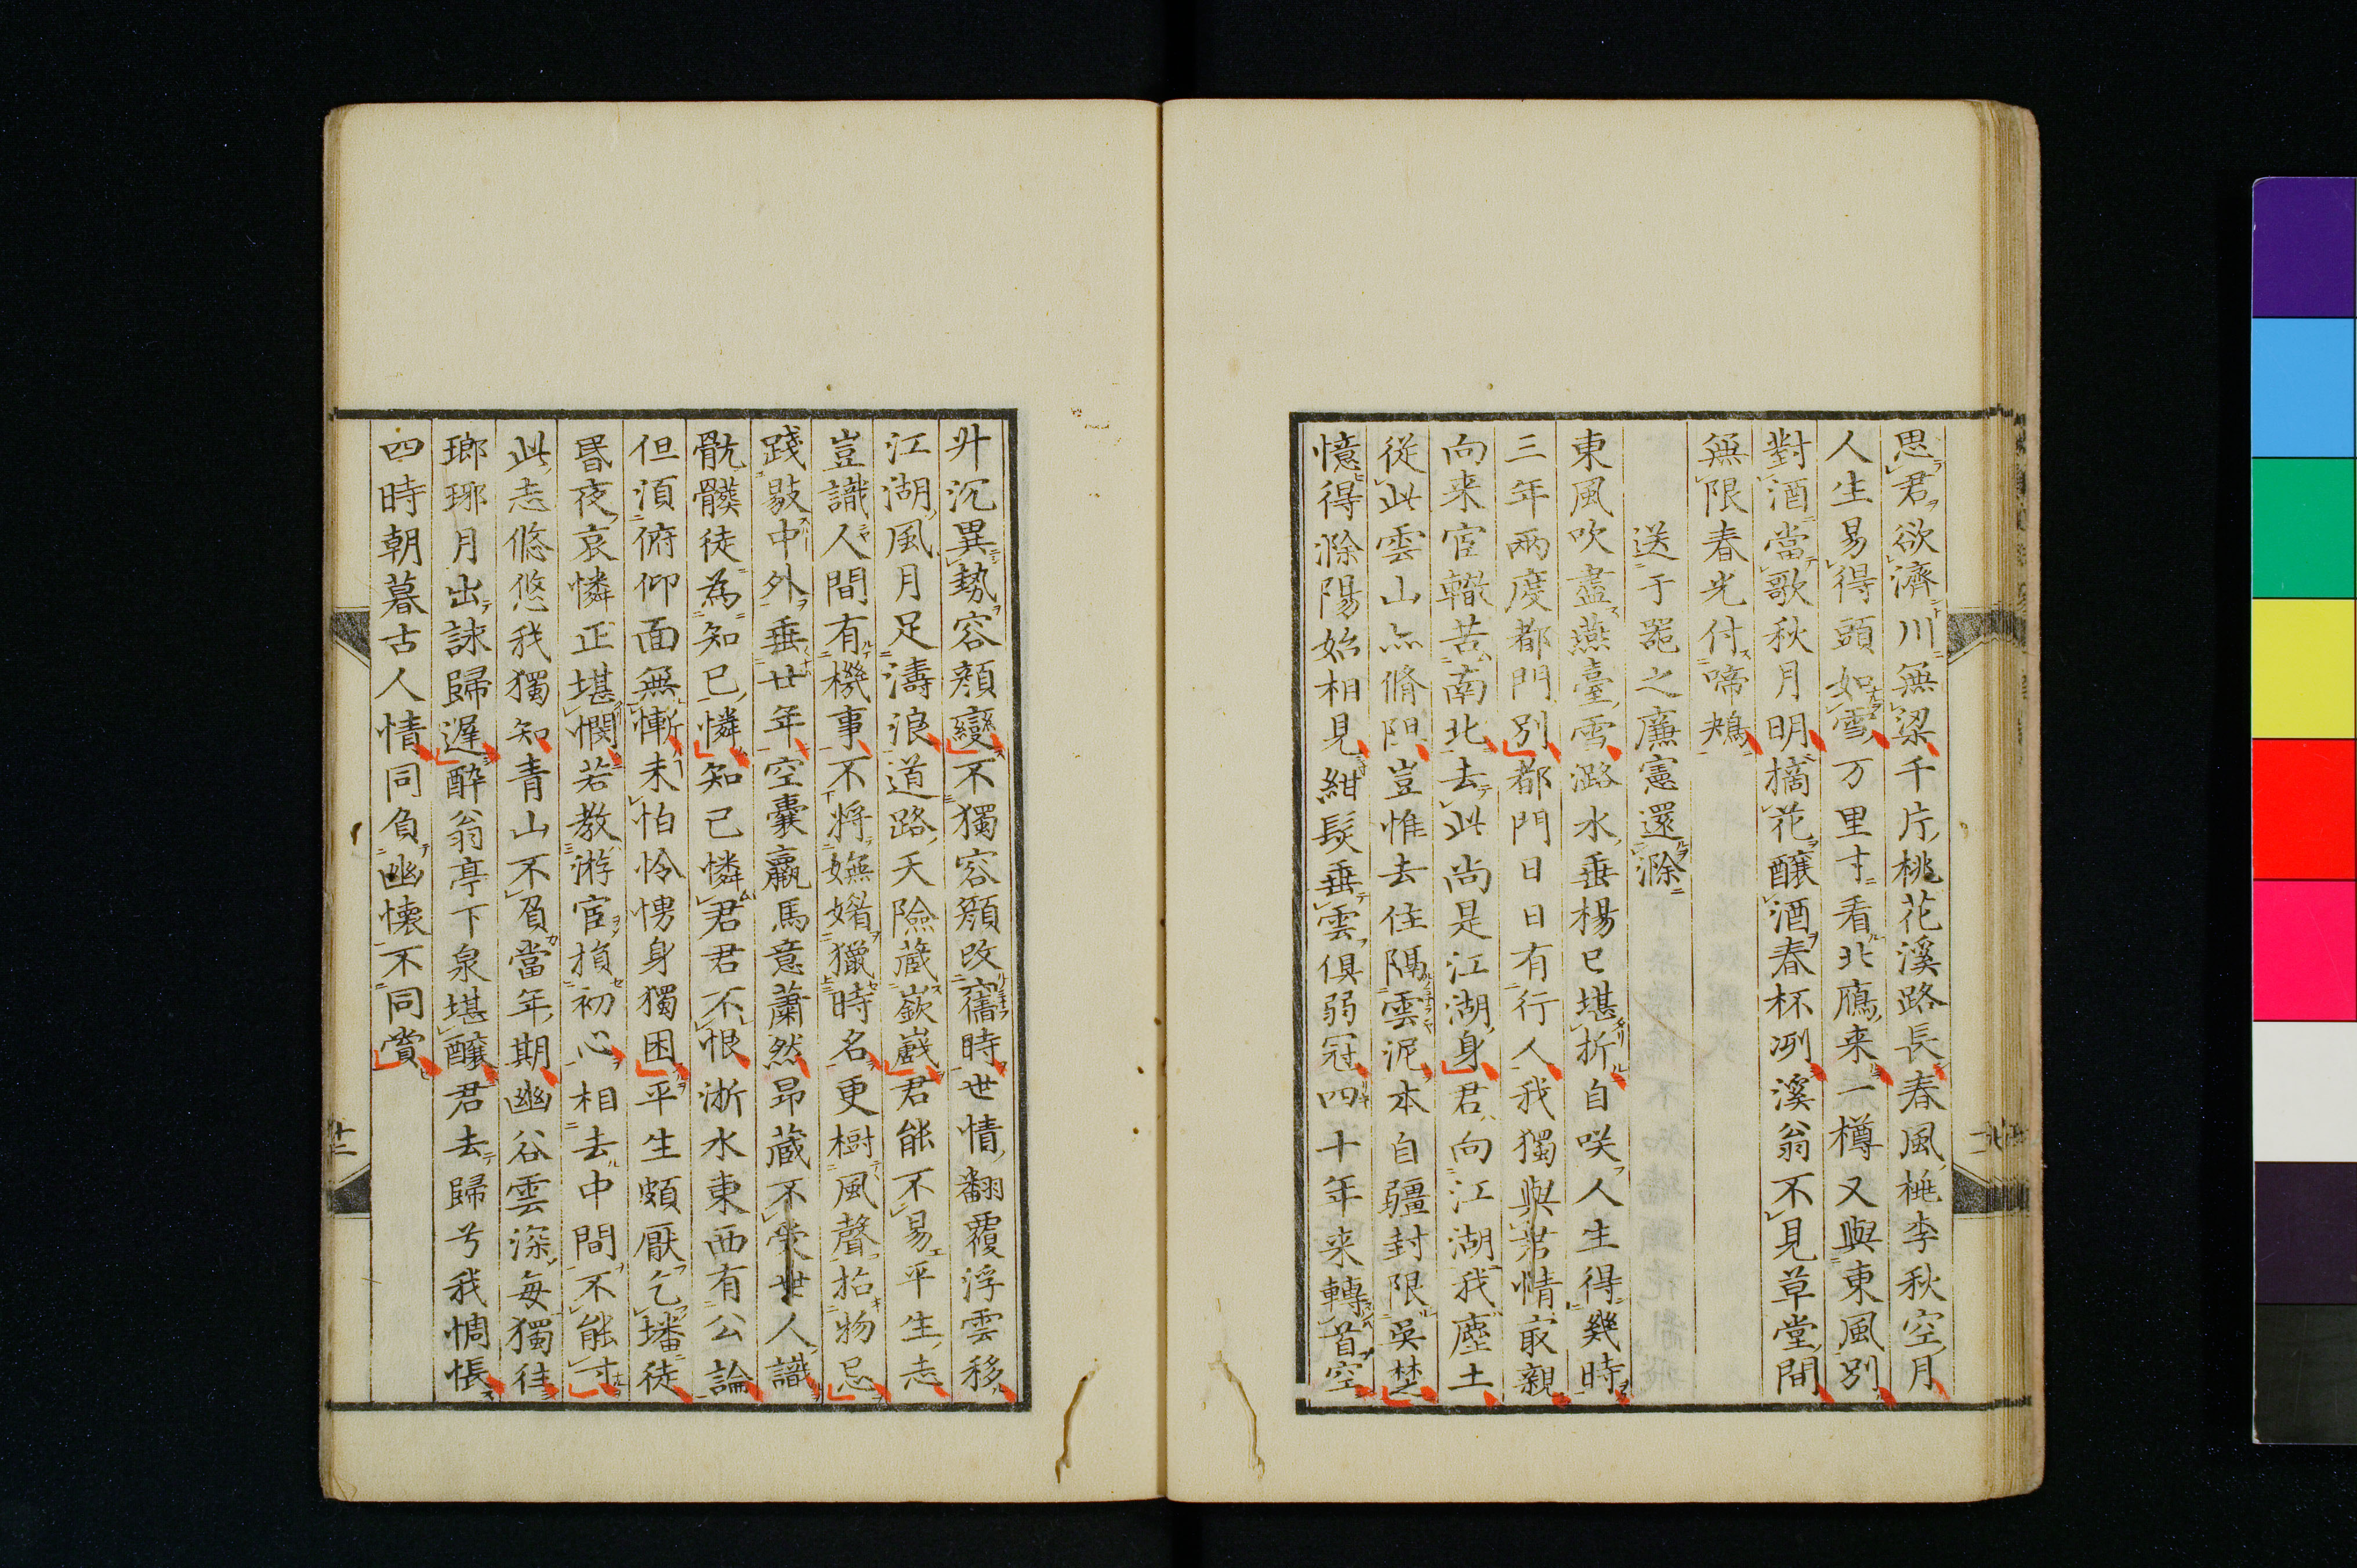 思君欲濟川無梁千片桃花溪路長春風桃李秋空月
人生易得頭如雪万里寸看北鴈来一樽又與東風別
對酒當歌秋月明摘花醸酒春杯冽溪翁不見草堂間
無限春光付啼鴂
送于器之廉憲還滁
東風吹盡燕臺雪潞水垂楊已堪折自咲人生得幾時
三年兩度都門別都門日日有行人我獨與君情冣親
向来宦轍苦南北去此尚是江湖身君向江湖我塵土
從此雲山亦脩阻豈惟去住隔雲泥本自疆封限吳楚
憶得滁陽始相見紺髮垂雲俱弱冠四十年来轉首空
升沉異勢容顔變不獨容顔改舊時世情翻覆浮雲移
江湖風月足濤浪道路天險蔵嶔巇君能不易平生志
豈識人間有機事不將嫵媚獵時名更樹風聲招物忌
踐敭中外垂廿年空囊羸馬意蕭然昂蔵不受世人識
骯髒徒為知已憐知己憐君君不恨淅水東西有公論
但湏俯仰面無慚未怕怜愣身獨困平生頗厭乞墦徒
昬夜哀憐正堪憫若教游宦損初心相去中間不能寸
此志悠悠我獨知青山不負當年期幽谷雲深毎獨往
瑯琊月出詠歸遲醉翁亭下泉堪醸君去歸兮我惆悵
四時朝暮古人情同負幽懐不同賞
十二